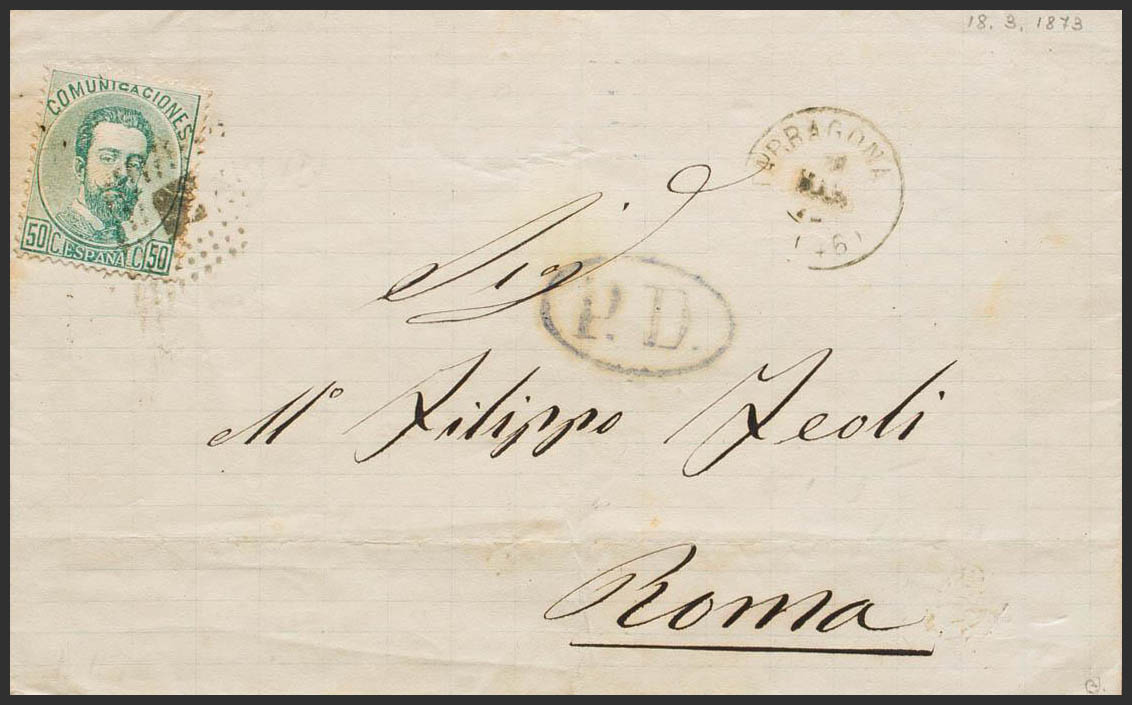 18. 3. 1873
COMUNICACIONES
50 C. ESPAÑA C. 50
TARRAGONA
MAR
(46)
P.D.
Sig
Mº Filippo Feoli
Roma